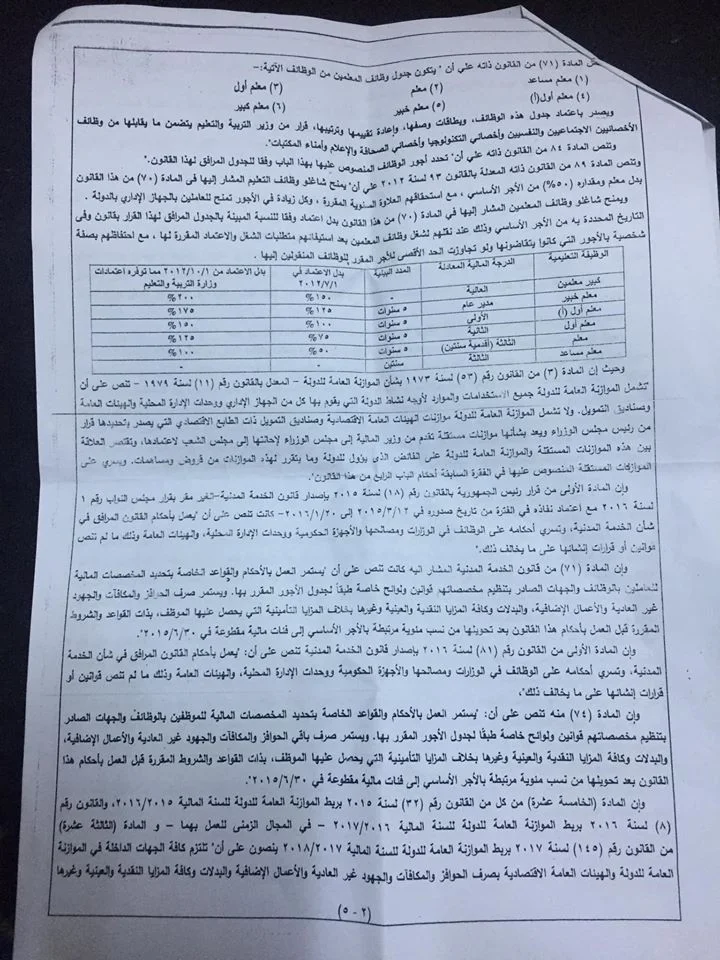 المادة (٧١) من القانون ذاته علي أن "يتكون جدول وظائف المعلمين من الوظائف الآتية:–
(١) معلم مساعد (٢) معلم (٣) معلم أول
(٤) معلم أول(أ) (٥) معلم خبير (٦) معلم كبير
ويصدر باعتماد جدول هذه الوظائف، وبطاقات وصفها، وإعادة تقييمها وترتيبها، قرار من وزير التربية والتعليم يتضمن ما يقابلها من وظائف
الأخصائيين الاجتماعيين والنفسيين وأخصائي التكنولوجيا وأخصائي الصحافة والإعلام وأمناء المكتبات".
وتنص المادة ٨٤ من القانون ذاته علي أن" تحدد أجور الوظائف المنصوص عليها بهذا الباب وفقا للجدول المرافق لهذا القانون."
وتنص المادة ٨٩ من القانون ذاته المعدلة بالقانون ٩٣ لسنة ٢٠١٢ علي أن" يمنح شاغلو وظائف التعليم المشار إليها فى المادة (٧٠) من هذا القانون
بدل معلم ومقداره (٥٠%) من الأجر الأساسي ، مع استحقاقهم العلاوة السنوية المقررة ، وكل زيادة في الأجور تمنح للعاملين بالجهاز الإداري بالدولة .
ويمنح شاغلو وظائف المعلمين المشار إليها في المادة (٧٠) من هذا القانون بدل اعتماد وفقا للنسبة المبينة بالجدول المرافق لهذا القرار بقانون وفى
التاريخ المحددة به من الأجر الأساسي وذلك عند نقلهم لشغل وظائف المعلمين بعد استيفائهم متطلبات الشغل والاعتماد المقررة لها ، مع احتفاظهم بصفة
شخصية بالأجور التي كانوا يتقاضونها ولو تجاوزت الحد الأقصى للأجر المقرر للوظائف المنقولين إليها .
الوظيفة التعليمية الدرجة المالية المعادلة المدد البينية بدل الاعتماد في ٢٠١٢/٧/١ بدل الاعتماد من ٢٠١٢/١٠/١ مما توفره اعتمادات وزارة التربية والتعليم
كبير معلمين العالية - ١٥٠% ٢٠٠%
معلم خبير مدير عام ٥ سنوات ١٢٥% ١٧٥%
معلم أول (أ) الأولى ٥ سنوات ١٠٠% ١٥٠%
معلم أول الثانية ٥ سنوات ٧٥% ١٢٥%
معلم الثالثة (أقدمية سنتين) ٥ سنوات ٥٠% ١٠٠%
معلم مساعد الثالثة سنتين - -
وحيث إن المادة (٣) من القانون رقم (٥٣) لسنة ١٩٧٣ بشأن الموازنة العامة للدولة – المعدل بالقانون رقم (١١) لسنة ١٩٧٩ – تنص على أن
"تشمل الموازنة العامة للدولة جميع الاستخدامات والموارد لأوجه نشاط الدولة التي يقوم بها كل من الجهاز الإداري ووحدات الإدارة المحلية والهيئات العامة
وصناديق التمويل. ولا تشمل الموازنة العامة للدولة موازنات الهيئات العامة الاقتصادية وصناديق التمويل ذات الطابع الاقتصادي التي يصدر بتحديدها قرار
من رئيس مجلس الوزراء ويعد بشأنها موازنات مستقلة تقدم من وزير المالية إلى مجلس الوزراء لإحالتها إلى مجلس الشعب لاعتمادها، وتقتصر العلاقة
بين هذه الموازنات المستقلة والموازنة العامة للدولة على الفائض الذى يؤول للدولة وما يتقرر لهذه الموازنات من قروض ومساهمات. ويسري على
الموازنات المستقلة المنصوص عليها في الفقرة السابقة أحكام الباب الرابع من هذا القانون".
وإن المادة الأولى من قرار رئيس الجمهورية بالقانون رقم (١٨) لسنة ٢٠١٥ بإصدار قانون الخدمة المدنية–الغير مقر بقرار مجلس النواب رقم ١
لسنة ٢٠١٦ مع اعتماد نفاذه في الفترة من تاريخ صدوره في ٢٠١٥/٣/١٢ إلى ٢٠١٦/١/٢٠– كانت تنص على أن "يعمل بأحكام القانون المرافق في
شأن الخدمة المدنية، وتسري أحكامه على الوظائف في الوزارات ومصالحها والأجهزة الحكومية ووحدات الإدارة المحلية، والهيئات العامة وذلك ما لم تنص
قوانين أو قرارات إنشائها على ما يخالف ذلك."
وإن المادة (٧١) من قانون الخدمة المدنية المشار اليه كانت تنص على أن "يستمر العمل بالأحكام والقواعد الخاصة بتحديد المخصصات المالية
للعاملين بالوظائف والجهات الصادر بتنظيم مخصصاتهم قوانين ولوائح خاصة طبقاً لجدول الأجور المقرر بها. ويستمر صرف الحوافز والمكافآت والجهود
غير العادية والأعمال الإضافية، والبدلات وكافة المزايا النقدية والعينية وغيرها بخلاف المزايا التأمينية التي يحصل عليها الموظف، بذات القواعد والشروط
المقررة قبل العمل بأحكام هذا القانون بعد تحويلها من نسب مئوية مرتبطة بالأجر الأساسي إلى فئات مالية مقطوعة في ٢٠١٥/٦/٣٠".
وإن المادة الأولى من القانون رقم (٨١) لسنة ٢٠١٦ بإصدار قانون الخدمة المدنية تنص على أن: "يعمل بأحكام القانون المرافق في شأن الخدمة
المدنية، وتسري أحكامه على الوظائف في الوزارات ومصالحها والأجهزة الحكومية ووحدات الإدارة المحلية، والهيئات العامة وذلك ما لم تنص قوانين أو
قرارات إنشائها على ما يخالف ذلك".
وإن المادة (٧٤) منه تنص على أن: "يستمر العمل بالأحكام والقواعد الخاصة بتحديد المخصصات المالية للموظفين بالوظائف والجهات الصادر
بتنظيم مخصصاتهم قوانين ولوائح خاصة طبقًا لجدول الأجور المقرر بها. ويستمر صرف باقي الحوافز والمكافآت والجهود غير العادية والأعمال الإضافية،
والبدلات وكافة المزايا النقدية والعينية وغيرها بخلاف المزايا التأمينية التي يحصل عليها الموظف، بذات القواعد والشروط المقررة قبل العمل بأحكام هذا
القانون بعد تحويلها من نسب مئوية مرتبطة بالأجر الأساسي إلى فئات مالية مقطوعة في ٢٠١٥/٦/٣٠".
وإن المادة (الخامسة عشرة) من كل من القانون رقم (٣٢) لسنة ٢٠١٥ بربط الموازنة العامة للدولة للسنة المالية ٢٠١٦/٢٠١٥، والقانون رقم
(٨) لسنة ٢٠١٦ بربط الموازنة العامة للدولة للسنة المالية ٢٠١٧/٢٠١٦ – في المجال الزمنى للعمل بهما – و المادة (الثالثة عشرة)
من القانون رقم (١٤٥) لسنة ٢٠١٧ بربط الموازنة العامة للدولة للسنة المالية ٢٠١٨/٢٠١٧ ينصون على أن" تلتزم كافة الجهات الداخلة في الموازنة
العامة للدولة والهيئات العامة الاقتصادية بصرف الحوافز والمكافآت والجهود غير العادية والأعمال الإضافية والبدلات وكافة المزايا النقدية والعينية وغيرها
(٢ – ٥)